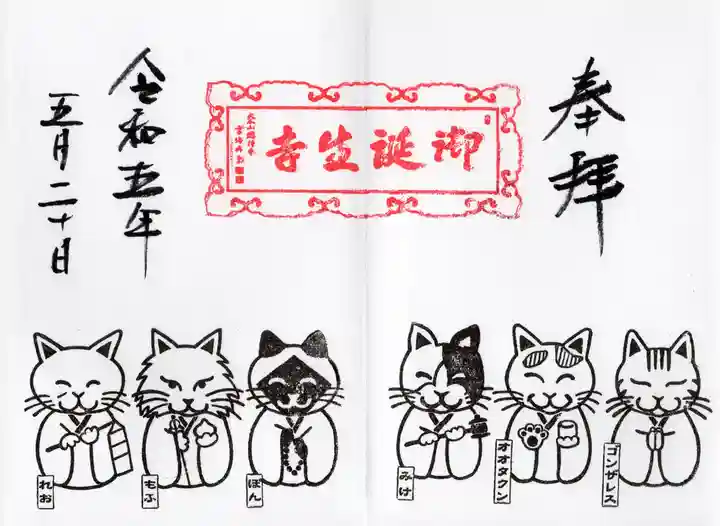 奉拝
御誕生寺
令和五年
五月二十日
ゴンザレス
オオタクン
みけ
ぽん
もふ
れお